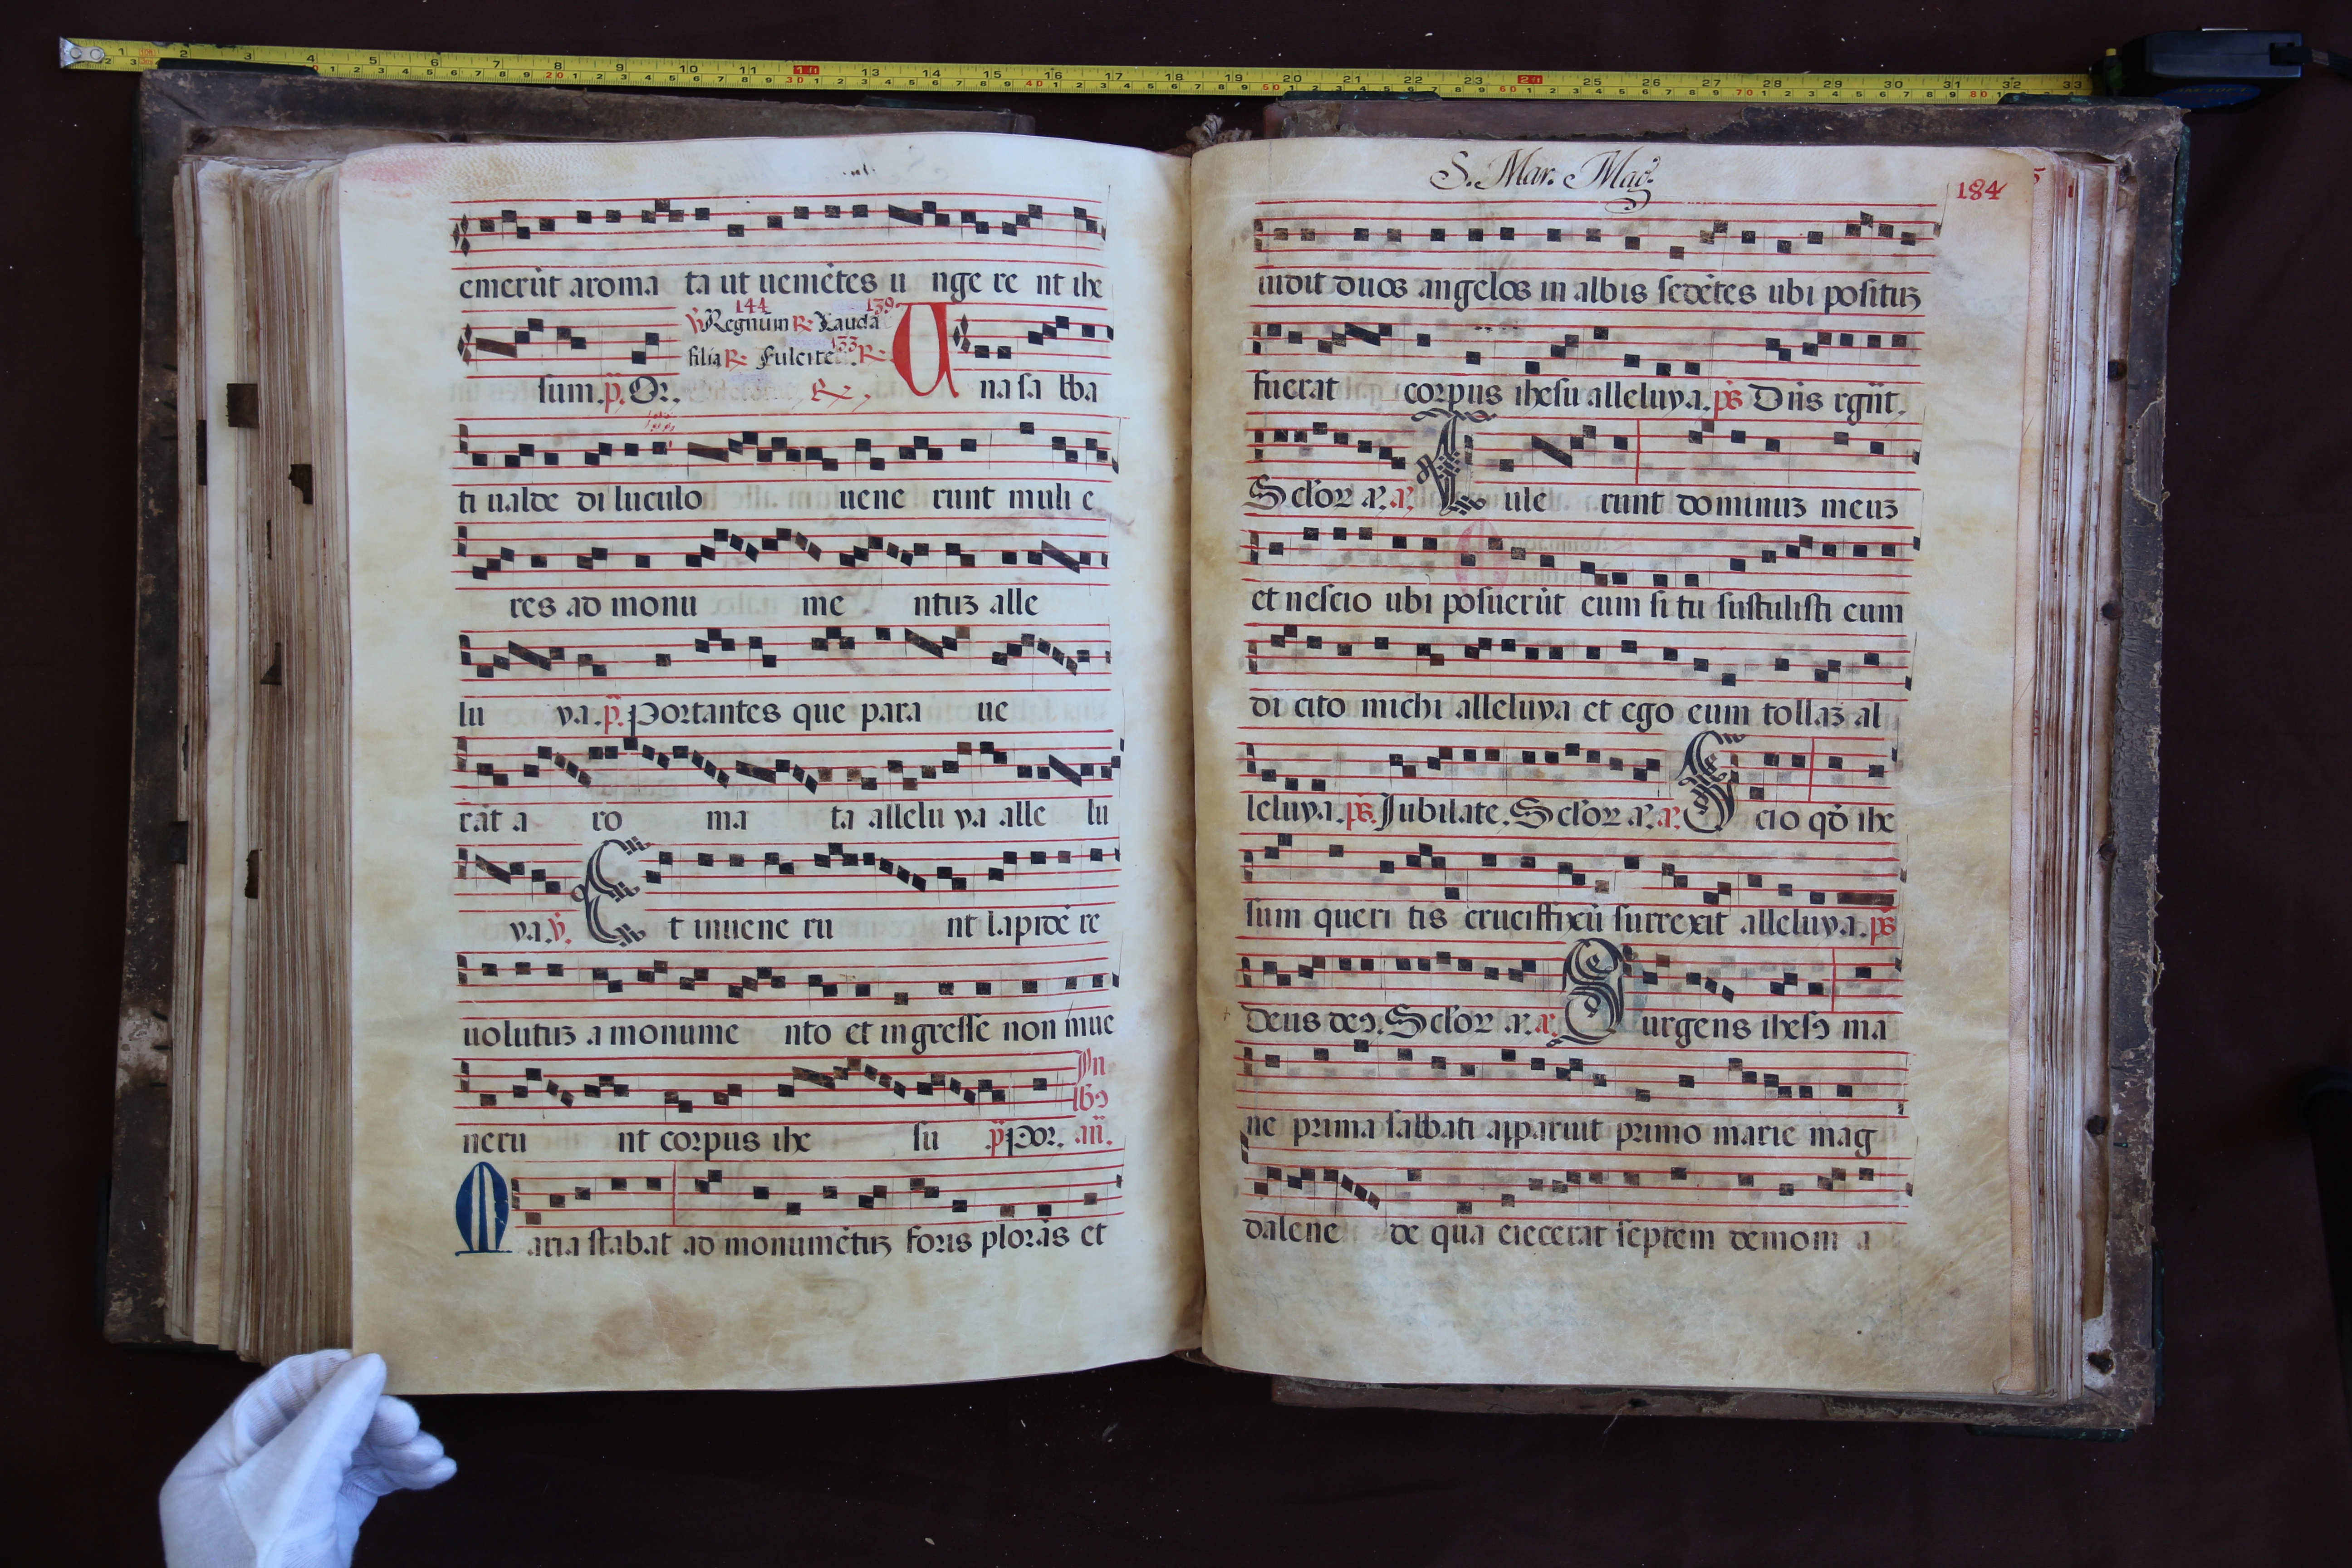 emerūt aroma ta ut uenietes u nge re nt ihe
144 139
℣ Regnum ℟ Lauda
filia ℟ Fulcite 133 ℟
sum. p̄. Or. ℟. Una sa bba
ti ualde di luculo uene runt muli e
res ad monu me ntuꝫ alle
lu ya. p̄. Portantes que para ue
rāt a ro ma ta allelu ya alle lu
ya. ℣. Et inuene ru nt lapidē re
uolutuꝫ a monume nto et ingresse non inue
In
lbꝯ
neru nt corpus ihe su p̄ Por. an̄.
Maria stabat ad monumētuꝫ foris plorās et
S. Mar. Mag.
184
uidit duos angelos in albis sedētes ubi posituꝫ
fuerat corpus ihesu alleluya. ps̄ Dn̄s rgn̄t.
Sclor a. a. Tule runt dominuꝫ meuꝫ
et nescio ubi posuerūt eum si tu sustulisti eum
di cito michi alleluya et ego eum tollaꝫ al
leluya. ps̄. Jubilate. Sclor a. a. Scio qd̄ ihe
sum queri tis crucifixū surrexit alleluya. ps̄
Deus deꝯ. Sclor a. a. Surgens ihesꝯ ma
ne prima sabbati apparuit primo marie mag
dalene de qua eiecerat septem demoni a